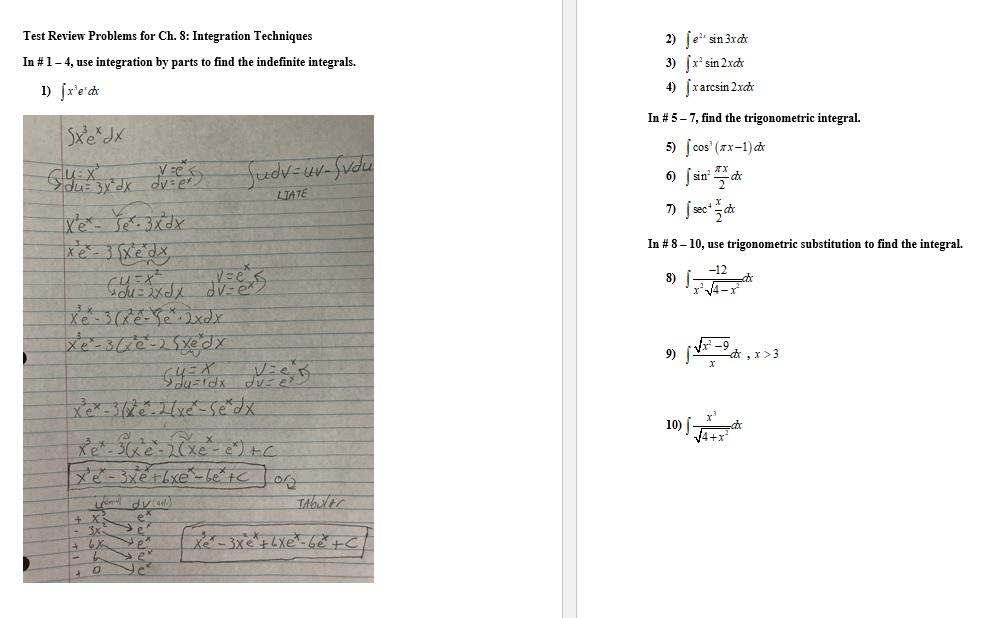 Test Review Problems for Ch. 8: Integration Techniques
In # 1 – 4, use integration by parts to find the indefinite integrals.
1) ∫x³eˣdx
∫x³eˣdx
u=x³ v=eˣ ∫udv=uv-∫vdu
du=3x²dx dv=eˣ LIATE
x³eˣ- ∫eˣ·3x²dx
x³eˣ-3∫x²eˣdx
u=x² v=eˣ
du=2xdx dv=eˣ
x³eˣ-3(x²eˣ-∫eˣ·2xdx
x³eˣ-3(x²eˣ-2∫xeˣdx
u=x v=eˣ
du=1dx dv=eˣ
x³eˣ-3(x²eˣ-2(xeˣ-∫eˣdx
x³eˣ-3(x²eˣ-2(xeˣ-eˣ)+C
x³eˣ-3x²eˣ+6xeˣ-6eˣ+C or
u dv Tabular
+ x³ eˣ
- 3x² eˣ
+ 6x eˣ x³eˣ-3x²eˣ+6xeˣ-6eˣ+C
- 6 eˣ
+ 0 eˣ
2) ∫e²ˣ sin 3xdx
3) ∫x² sin 2xdx
4) ∫x arcsin 2xdx
In # 5 – 7, find the trigonometric integral.
5) ∫cos³(πx−1)dx
6) ∫sin² πx/2 dx
7) ∫sec⁴ x/2 dx
In # 8 – 10, use trigonometric substitution to find the integral.
8) ∫−12/(x²√(4−x²)) dx
9) ∫√(x²−9)/x dx , x > 3
10) ∫x³/√(4+x²) dx